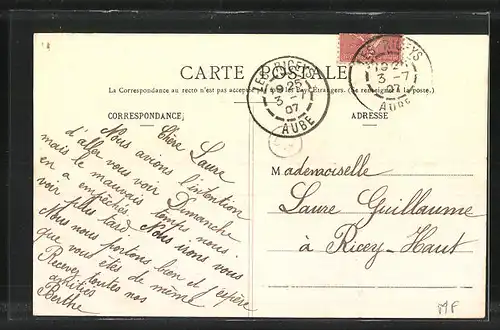 CARTE POSTALE
La Correspondance au recto n'est pas acceptée par tous les Pays Étrangers. (Se renseigner à la poste.)
CORRESPONDANCE
ADRESSE
LES RICEYS
19 25
3 -7
07
AUBE
LES RICEYS
19 25
3 -7
07
AUBE
Chère Laure
Nous avions l'intention
d'aller vous voir Dimanche
mais le mauvais temps nous
en a empêchés. Nous irons vous
voir plus tard.
Nous nous portons bien et j'espère
que vous êtes de même.
Recevez toutes nos
amitiés
Berthe
Mademoiselle
Laure Guillaume
à Ricey-Haut